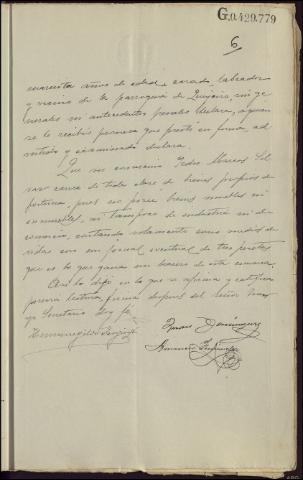 G.0.429.779
6
cuarenta años de edad, casado, labrador
y vecino de la parroquia de sin ge
nerales ni antecedentes penales declara, á quien
se le recibió promesa que prestó en forma, ad
vertido y examinado declara:
Que su convecino Pedro Marcos Sil
var carece de toda clase de bienes propios de
fortuna, pues no posee bienes muebles ni
inmuebles, ni tampoco de industria ni de
comercio, contando solamente como medios de
vida con un jornal eventual de dos pesetas
que es lo que ganan los braceros de esta comarca.
Así lo dijo en lo que se afirma y ratifica
previa lectura, firma despues del Señor Juez
yo Secretario doy fe.
Hermenegildo
Dominguez